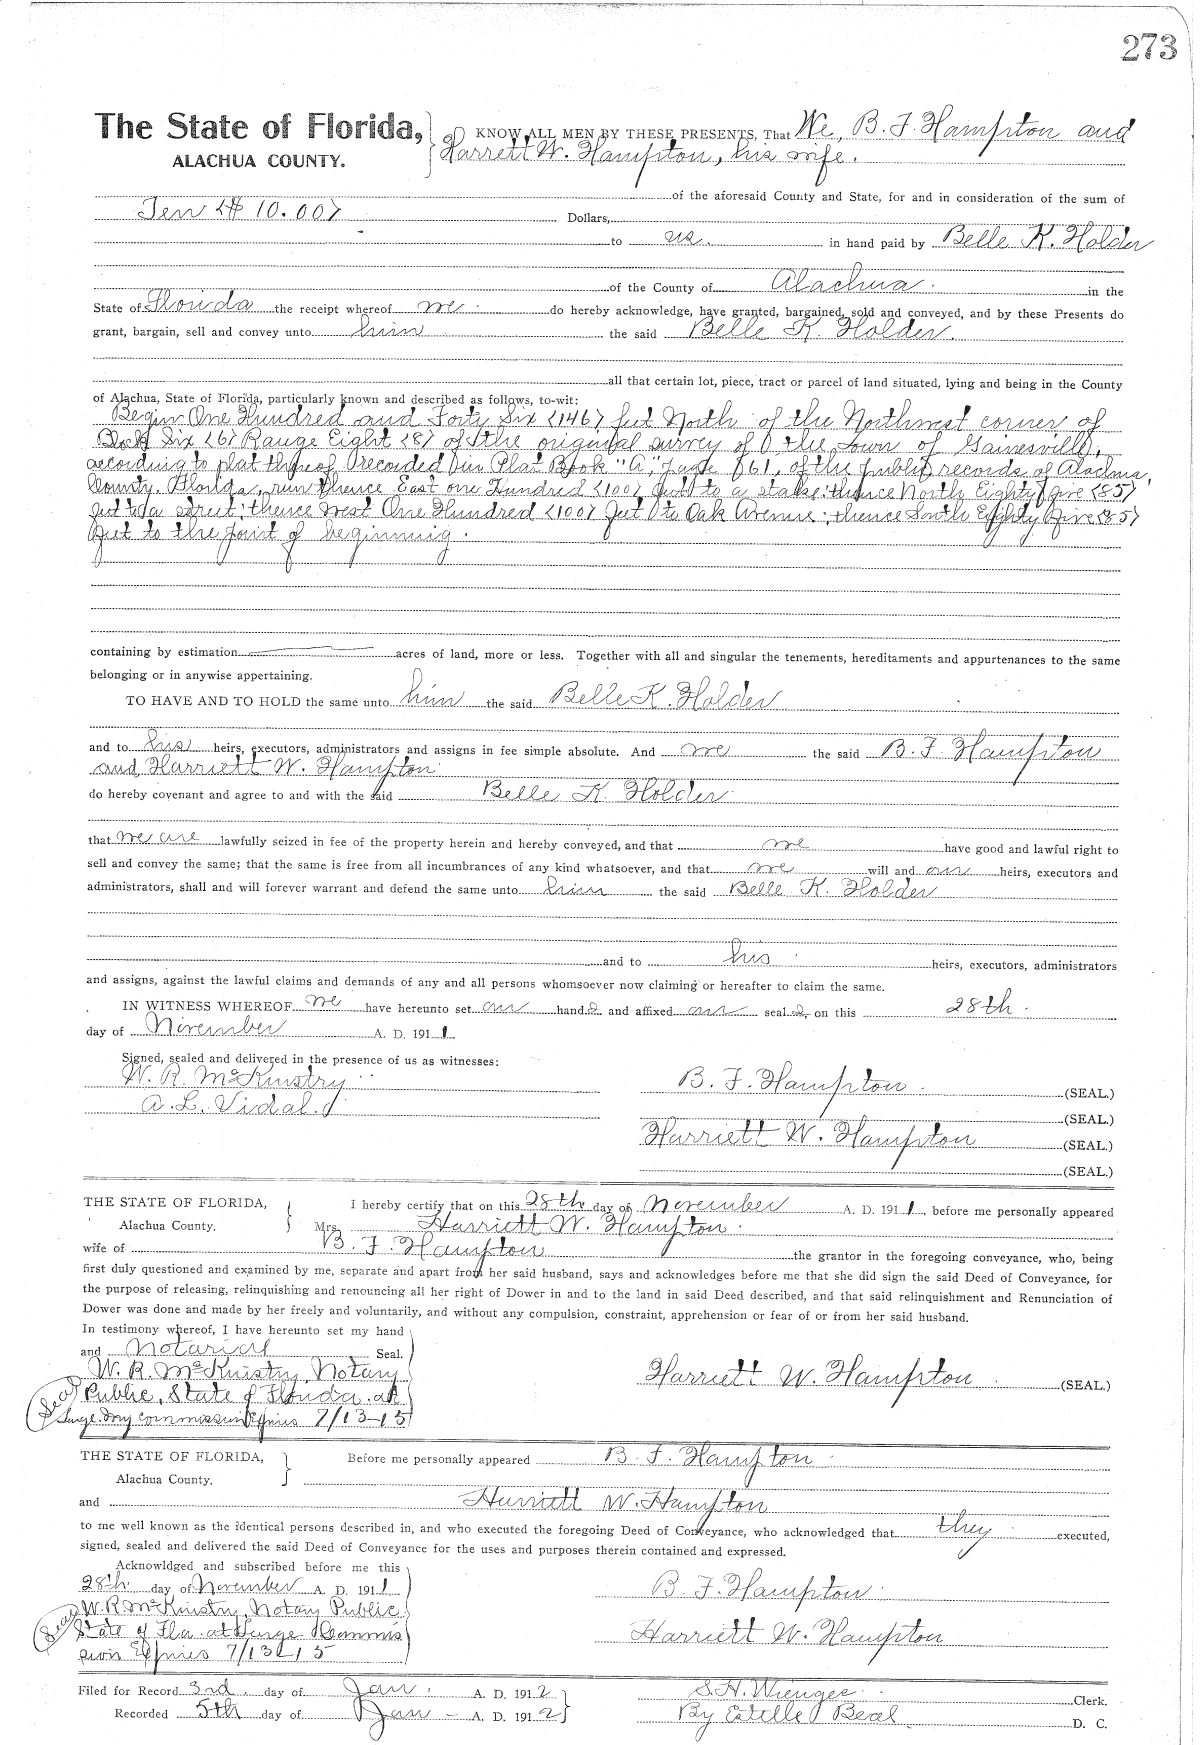 273
The State of Florida,
ALACHUA COUNTY.
KNOW ALL MEN BY THESE PRESENTS, That We, B. F. Hampton and
Harrett W. Hampton, his wife.
of the aforesaid County and State, for and in consideration of the sum of
Ten ($10.00) Dollars,
to us. in hand paid by Belle K. Holder
of the County of Alachua. in the
State of Florida the receipt whereof we do hereby acknowledge, have granted, bargained, sold and conveyed, and by these Presents do
grant, bargain, sell and convey unto him the said Belle K. Holder.
all that certain lot, piece, tract or parcel of land situated, lying and being in the County
of Alachua, State of Florida, particularly known and described as follows, to-wit:
Begin One Hundred and Forty Six (146) feet North of the Northwest corner of
Block Six (6) Range Eight (8) of the original survey of the town of Gainesville,
according to plat thereof recorded in Plat Book "A", page 61, of the public records of Alachua
County, Florida, run thence East one Hundred (100) feet to a stake; thence North Eighty five (85)
feet to a street; thence West One Hundred (100) feet to Oak Avenue; thence South Eighty Five (85)
feet to the point of beginning.
containing by estimation acres of land, more or less. Together with all and singular the tenements, hereditaments and appurtenances to the same
belonging or in anywise appertaining.
TO HAVE AND TO HOLD the same unto him the said Belle K. Holder
and to his heirs, executors, administrators and assigns in fee simple absolute. And we the said B. F. Hampton
and Harriett W. Hampton
do hereby covenant and agree to and with the said Belle K. Holder
that we are lawfully seized in fee of the property herein and hereby conveyed, and that we have good and lawful right to
sell and convey the same; that the same is free from all incumbrances of any kind whatsoever, and that we will and our heirs, executors and
administrators, shall and will forever warrant and defend the same unto him the said Belle K. Holder
and to his heirs, executors, administrators
and assigns, against the lawful claims and demands of any and all persons whomsoever now claiming or hereafter to claim the same.
IN WITNESS WHEREOF we have hereunto set our hand s and affixed our seal s on this 28th
day of November A. D. 1911.
Signed, sealed and delivered in the presence of us as witnesses:
W. R. McKinstry
A. L. Vidal.
B. F. Hampton (SEAL.)
(SEAL.)
Harriett W. Hampton (SEAL.)
(SEAL.)
THE STATE OF FLORIDA,
Alachua County.
I hereby certify that on this 28th day of November A. D. 1911, before me personally appeared
Mrs. Harriett W. Hampton
wife of B. F. Hampton the grantor in the foregoing conveyance, who, being
first duly questioned and examined by me, separate and apart from her said husband, says and acknowledges before me that she did sign the said Deed of Conveyance, for
the purpose of releasing, relinquishing and renouncing all her right of Dower in and to the land in said Deed described, and that said relinquishment and Renunciation of
Dower was done and made by her freely and voluntarily, and without any compulsion, constraint, apprehension or fear of or from her said husband.
In testimony whereof, I have hereunto set my hand
and Notarial Seal.
W. R. McKinstry, Notary
Public, State of Florida at
Large. My commission Expires 7/13-15
Seal
Harriett W. Hampton (SEAL.)
THE STATE OF FLORIDA,
Alachua County.
Before me personally appeared B. F. Hampton
and Harriett W. Hampton
to me well known as the identical persons described in, and who executed the foregoing Deed of Conveyance, who acknowledged that they executed,
signed, sealed and delivered the said Deed of Conveyance for the uses and purposes therein contained and expressed.
Acknowldged and subscribed before me this
28th day of November A. D. 1911
W. R. McKinstry, Notary Public
State of Fla. at Large Commis
sion Expires 7/13-15
Seal
B. F. Hampton
Harriett W. Hampton
Filed for Record 3rd. day of Jan. A. D. 1912
Recorded 5th day of Jan A. D. 1912
S. H. Wienges Clerk.
By Estelle Beal D. C.